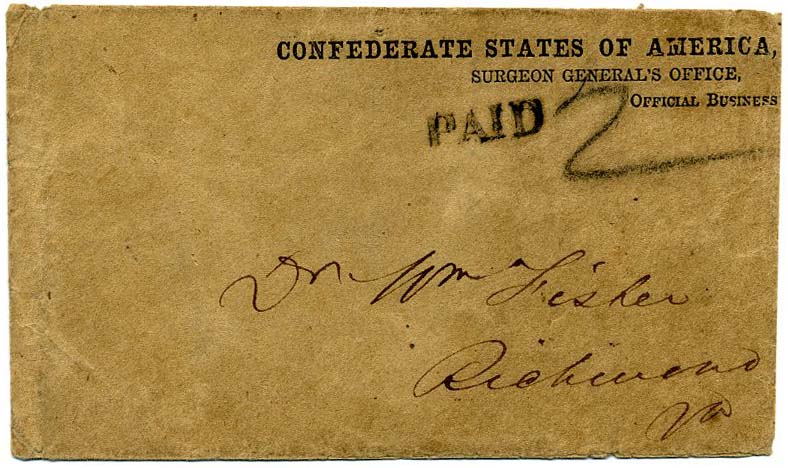 CONFEDERATE STATES OF AMERICA,
SURGEON GENERAL'S OFFICE,
OFFICIAL BUSINESS
PAID 2
Dr Wm Fisher
Richmond
Va